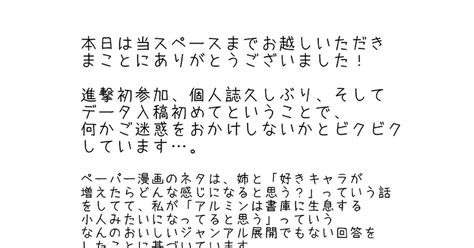 本日は当スペースまでお越しいただき
まことにありがとうございました！
進撃初参加、個人誌久しぶり、そして
データ入稿初めてということで、
何かご迷惑をおかけしないかとビクビク
しています…。
ペーパー漫画のネタは、姉と「好きキャラが
増えたらどんな感じになると思う？」っていう話
をしてて、私が「アルミンは書庫に生息する
小人みたいになってると思う」っていう
なんのおいしいジャンアル展開でもない回答を
したことに基づいています